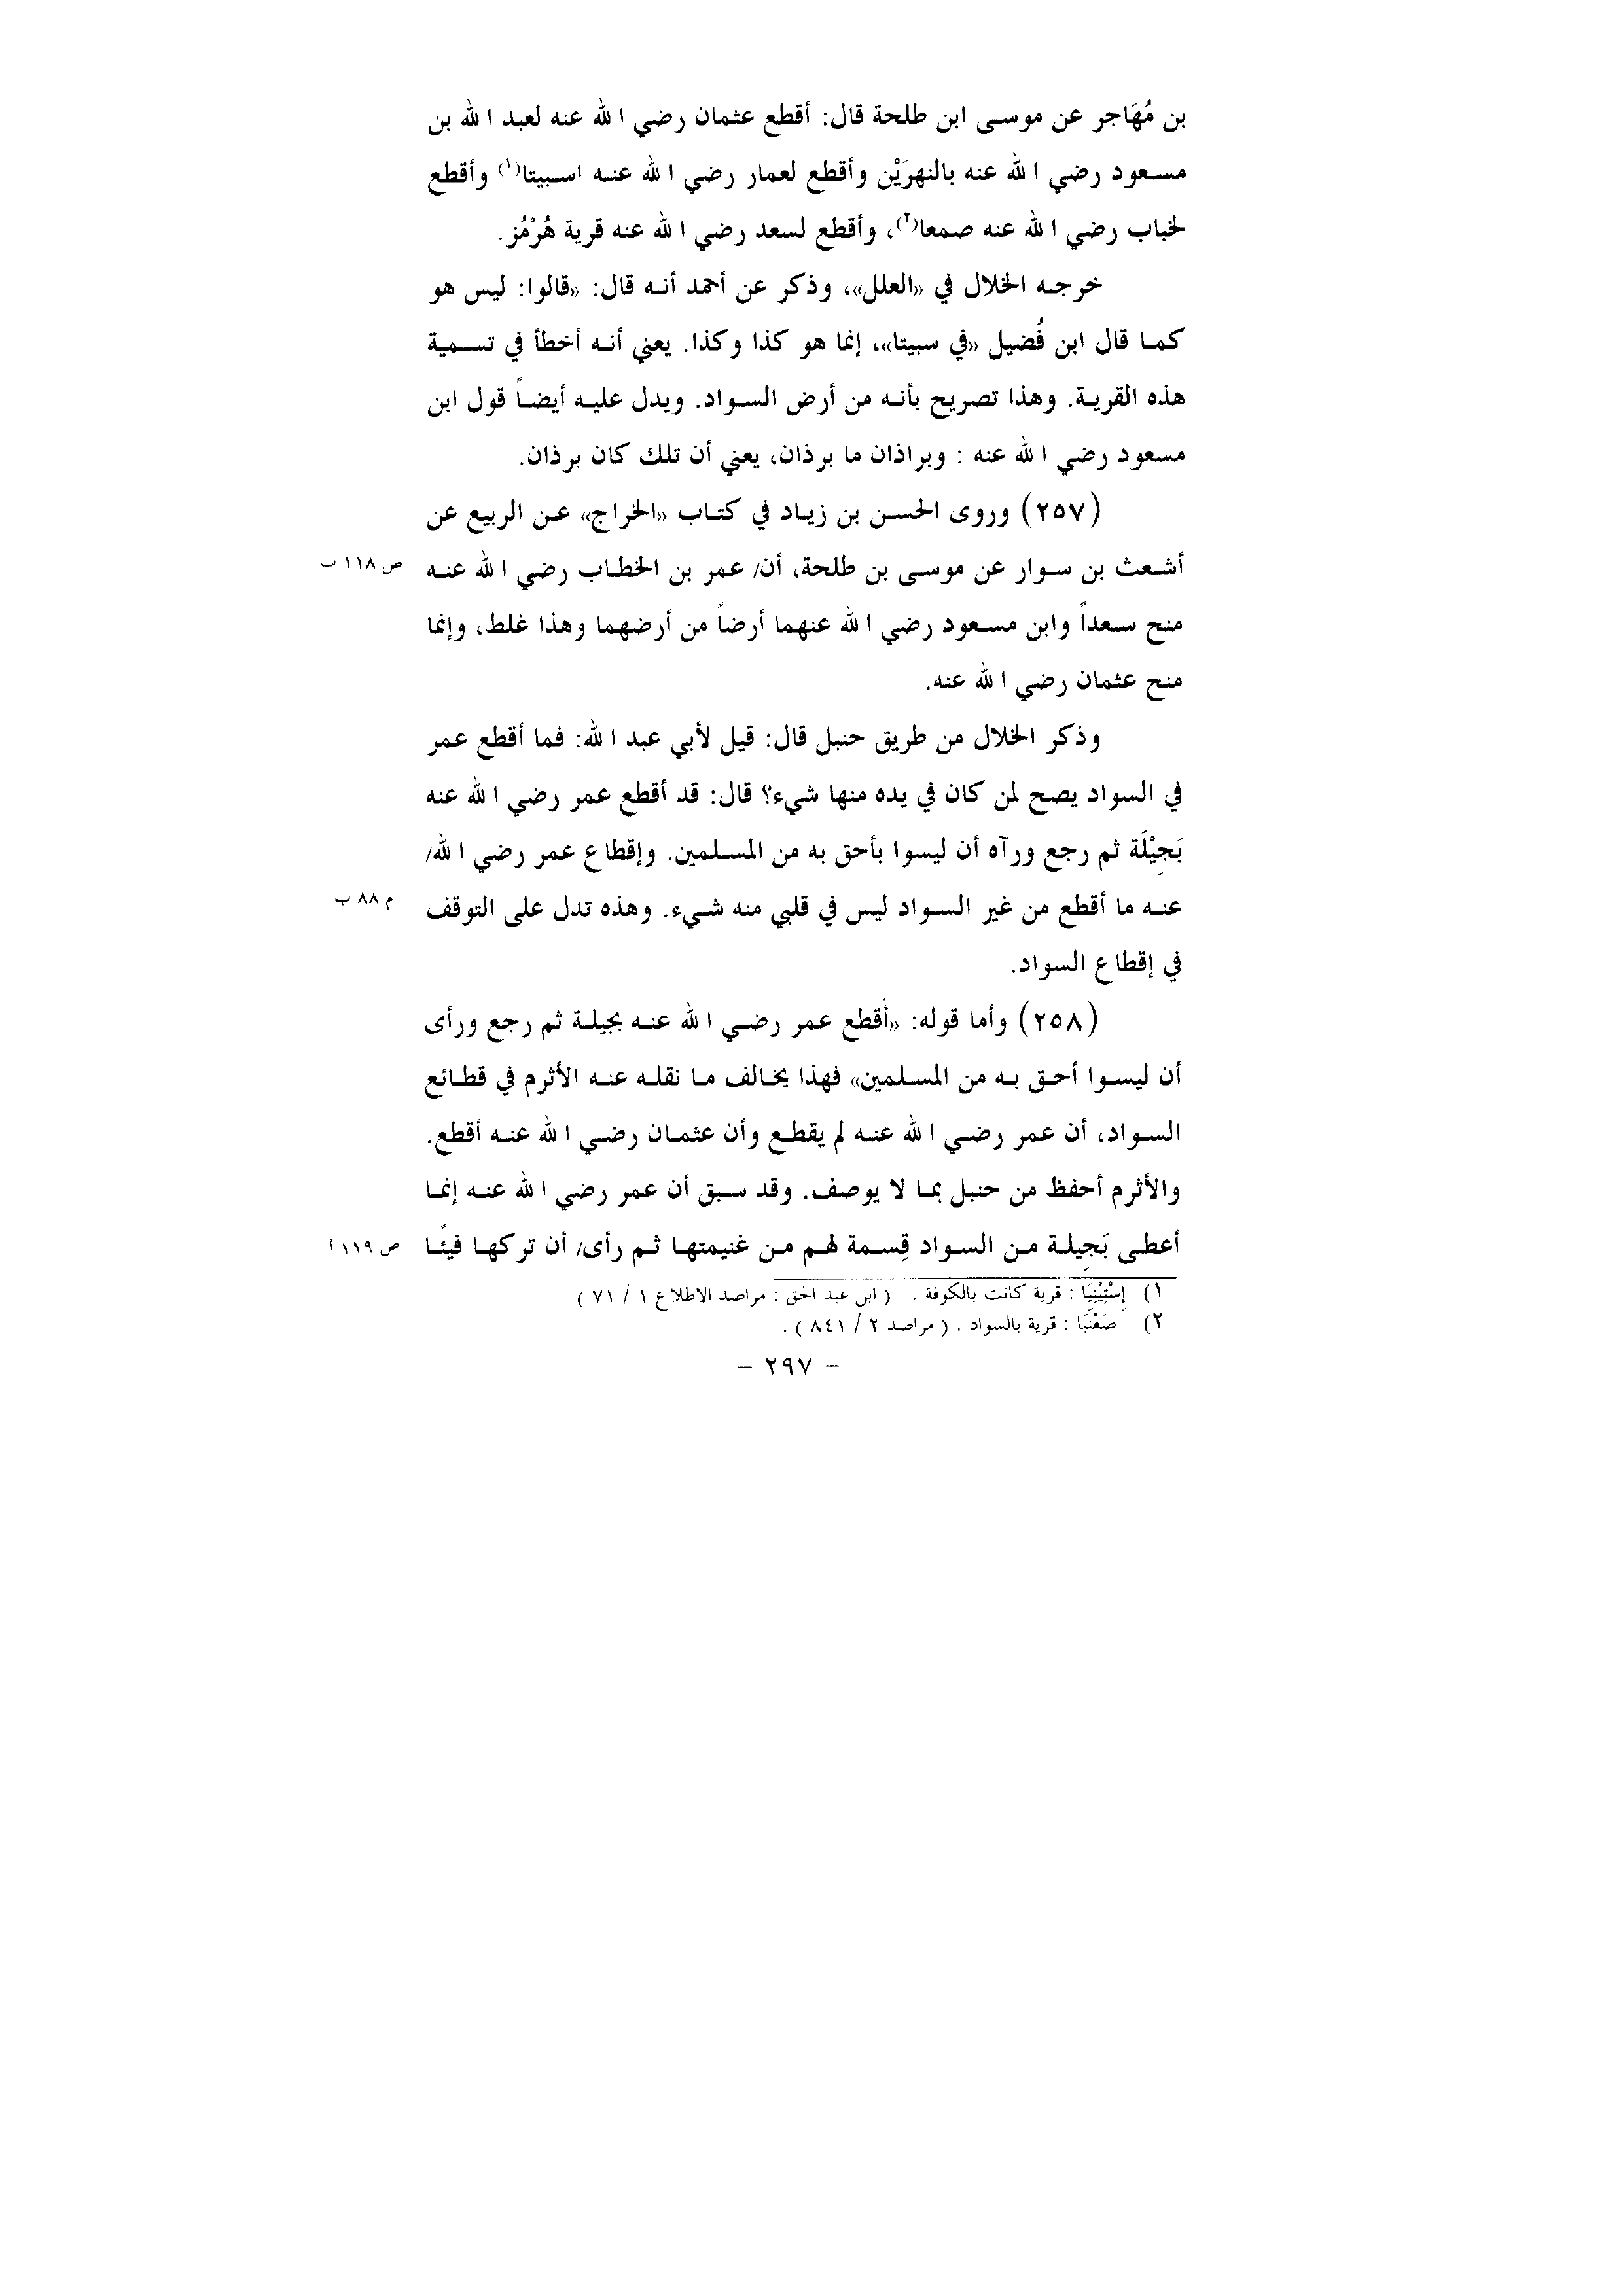 بن مُهَاجر عن موسى ابن طلحة قال: أقطع عثمان رضي الله عنه لعبد الله بن
مسعود رضي الله عنه بالنهرَيْن وأقطع لعمار رضي الله عنه اسبيتا(١) وأقطع
لخباب رضي الله عنه صمعا(٢)، وأقطع لسعد رضي الله عنه قرية هُرْمُز.
خرجه الخلال في «العلل»، وذكر عن أحمد أنه قال: «قالوا: ليس هو
كما قال ابن فُضيل «في سبيتا»، إنما هو كذا وكذا. يعني أنه أخطأ في تسمية
هذه القرية. وهذا تصريح بأنه من أرض السواد. ويدل عليه أيضاً قول ابن
مسعود رضي الله عنه : وبراذان ما برذان، يعني أن تلك كان برذان.
(٢٥٧) وروى الحسن بن زياد في كتاب «الخراج» عن الربيع عن
أشعث بن سوار عن موسى بن طلحة، أن/ عمر بن الخطاب رضي الله عنه ص ١١٨ ب
منح سعداً وابن مسعود رضي الله عنهما أرضاً من أرضهما وهذا غلط، وإنما
منح عثمان رضي الله عنه.
وذكر الخلال من طريق حنبل قال: قيل لأبي عبد الله: فما أقطع عمر
في السواد يصح لمن كان في يده منها شيء؟ قال: قد أقطع عمر رضي الله عنه
بَجِيْلَة ثم رجع ورآه أن ليسوا بأحق به من المسلمين. وإقطاع عمر رضي الله/
عنه ما أقطع من غير السواد ليس في قلبي منه شيء. وهذه تدل على التوقف م ٨٨ ب
في إقطاع السواد.
(٢٥٨) وأما قوله: «أقطع عمر رضي الله عنه بجيلة ثم رجع ورأى
أن ليسوا أحق به من المسلمين» فهذا يخالف ما نقله عنه الأثرم في قطائع
السواد، أن عمر رضي الله عنه لم يقطع وأن عثمان رضي الله عنه أقطع.
والأثرم أحفظ من حنبل بما لا يوصف. وقد سبق أن عمر رضي الله عنه إنما
أعطى بَجِيلة من السواد قِسمة لهم من غنيمتها ثم رأى/ أن تركها فيئًا ص ١١٩ أ
١) إِسْتِيْنِيَا : قرية كانت بالكوفة . ( ابن عبد الحق : مراصد الاطلاع ١ / ٧١ )
٢) صَعْنَبَا : قرية بالسواد . ( مراصد ٢ / ٨٤١ ) .
– ٢٩٧ –